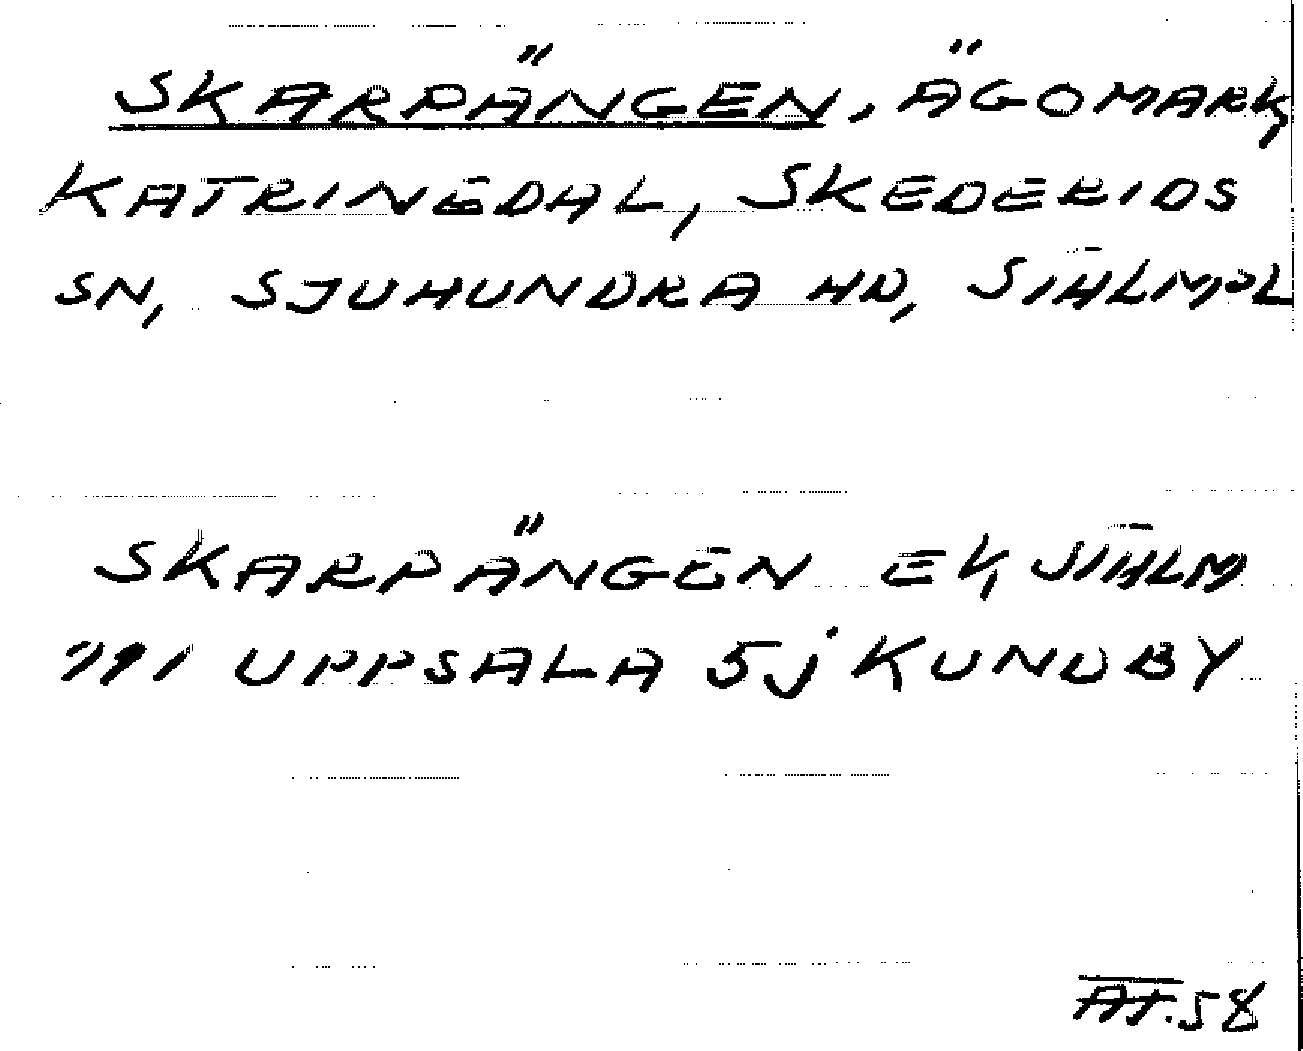 SKARPÄNGEN, ÄGOMARK,
KATRINEDAL, SKEDERIDS
SN, SJUHUNDRA HD,
SKARPÄNGEN EK,
UPPSALA 5j KUNDBY
58